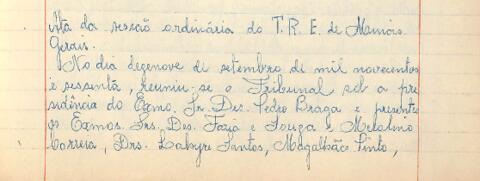 Ata da sessão ordinária do T. R. E. de Minas
Gerais.
No dia dezenove de setembro de mil novecentos
e sessenta, reuniu-se o Tribunal sob a pre
sidência do Exmo. Sr. Des. Pedro Braga e presente
os Exmos. Srs. Des. Faria e Souza e Merolino
Correia, Drs. Labyre Santos, Magalhães Pinto,